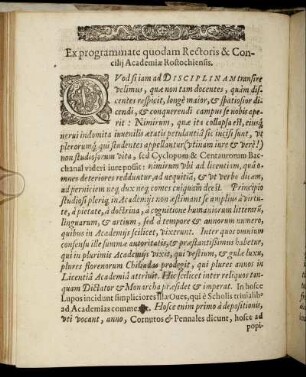 Ex programmate quodam Rectoris & Con-
cilij Academiæ Rostochiensis.
QVod si iam ad DISCIPLINAM transire
velimus, quæ non tam docentes, quàm dis-
centes respicit, longè maior, & spatiosior di-
cendi, & conquerendi campus se nobis ape-
rit: Nimirum, quæ ita collapsa est, eiusq́;
nerui indomita iuuenilis ætatis petulantiâ sic incisi sunt, vt
plerorumq́; qui studentes appellantur, (vtinam iure & verè!)
non studiosorum vita, sed Cyclopum & Centaurorum Bac-
chanal videri iure possit: nimirum vbi ad licentiam, quâ o-
mnes deteriores redduntur, ad nequitiã, & vt verbo dicam,
ad perniciem neq́; dux neq́; comes cuiquàm deest. Principio
studiosi pleriq́; in Academijs non æstimant se amplius à virtu-
te, à pietate, à doctrina, à cognitione humaniorum litterarũ,
linguarum, & artium, sed à tempore & annorum numero,
quibus in Academijs scilicet, vixerunt. Inter quos omnium
consensu ille summæ autoritatis, & præstantissimus habetur,
qui in plurimis Academijs vixit, qui vestium, & gulæ luxu,
plures florenorum Chiliadas prodegit, qui plures annos in
Licentiâ Academiâ attriuit. Hic scilicet inter reliquos tan-
quam Dictator & Monarcha præsidet & imperat. In hosce
Lupos incidunt simpliciores istæ Oues, qui è Scholis triuialib9
ad Academias commeãt. Hosce enim primo à depositionis,
vti vocant, anno, Cornutos & Pennales dicunt, hosce ad
popi-